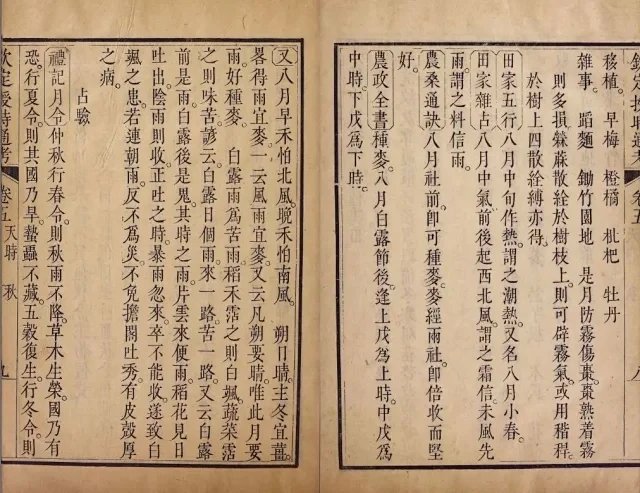 欽定授時通考
移植。早梅　橙橘　枇杷　牡丹
雜事。蹈麵　鋤竹園地　是月防霧傷棗。棗熟着霧
則多損。檾蔴散絟於樹枝上。則可辟霧氣。或用稭稈
於樹上四散絟縛亦得。
田家五行八月中旬作熱。謂之潮熱。又名八月小春。
田家雜占八月中氣前後起西北風。謂之霜信。未風先
雨。謂之料信雨。
農桑通訣八月社前。卽可種麥。麥經兩社。卽倍收而堅
好。
農政全書種麥。八月白露節後。逢上戊爲上時。中戊爲
中時。下戊爲下時。
又八月早禾怕北風。晚禾怕南風。　朔日晴。主冬宜薑。
畧得雨。宜麥。一云風雨宜麥。又云凡朔要晴。惟此月要
雨。好種麥。　白露雨爲苦雨。稻禾霑之則白颯。蔬菜霑
之則味苦。諺云白露日個雨。來一路。苦一路。又云白露
前是雨。白露後是鬼。其時之雨。片雲來便雨。稻花見日
吐出。陰雨則收。正吐之時。暴雨忽來。卒不能收。遂致白
颯之患。若連朝雨。反不爲災。不免擔閣吐秀。有皮殼厚
之病。
占驗
禮記月令仲秋行春令。則秋雨不降。草木生榮。國乃有
恐。行夏令。則其國乃旱。蟄蟲不藏。五穀復生。行冬令。則
欽定授時通考　卷五　天時　秋　九